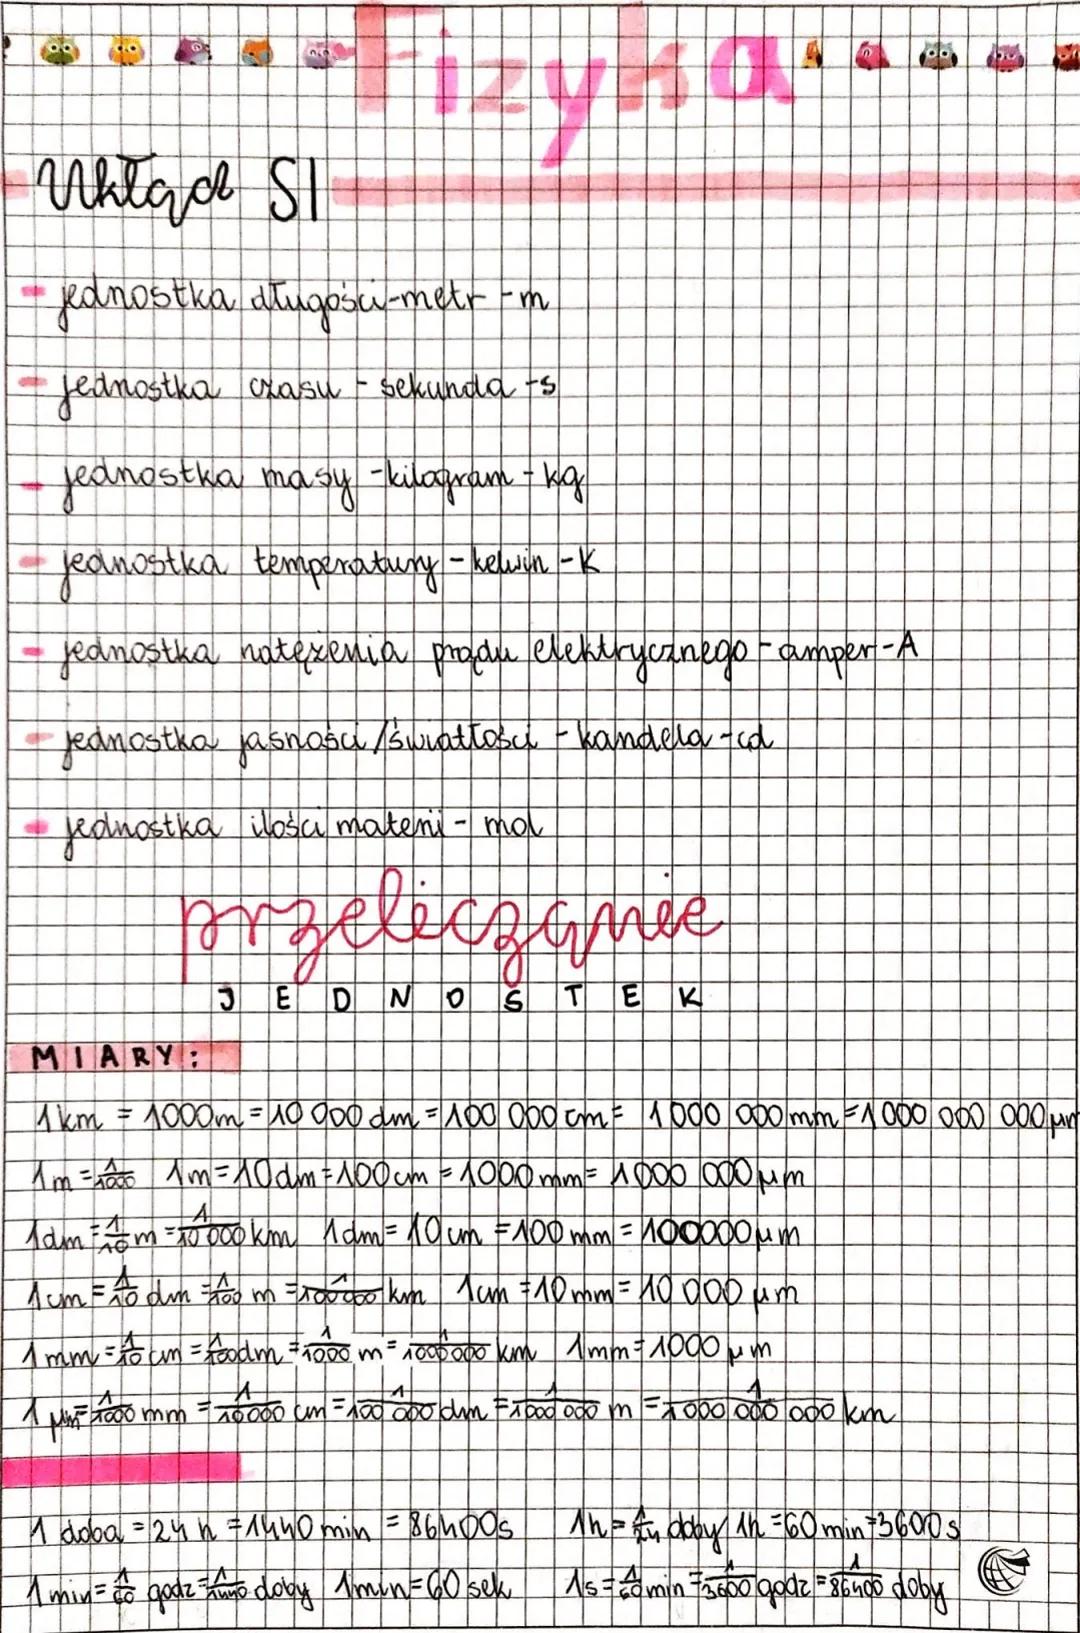 Fizyka
Układ SI
- jednostka długości-metr -m
- jednostka czasu - sekunda -s
- jednostka masy -kilogram - kg
- jednostka temperatury - kelwin -K
- jednostka natężenia prądu elektrycznego - amper-A
- jednostka jasności/światłości - kandela -cd
- jednostka ilości materii - mol
przeliczanie
JEDNOSTEK
MIARY:
1km = 1000m = 10 000 dm = 100 000 cm = 1 000 000 mm = 1 000 000 000 μm
1m = 1/1000 1m = 10dm = 100cm = 1000mm = 1 000 000 μm
1dm = 1/10 m = 1/10 000 km 1dm = 10cm = 100mm = 100000 μm
1cm = 1/10 dm = 1/100 m = 1/100 000 km 1cm = 10mm = 10 000 μm
1mm = 1/10 cm = 1/100 dm = 1/1000 m = 1/1000 000 km 1mm = 1000 μm
1 μm = 1/1000 mm = 1/10 000 cm = 1/100 000 dm = 1/1000 000 m = 1/1 000 000 000 km
1 doba = 24 h = 1440 min = 86400s 1h = 1/24 doby 1h = 60 min = 3600s
1 min = 1/60 godz = 1/1440 doby 1min = 60 sek 1s = 1/60 min = 1/3600 godz = 1/86400 doby